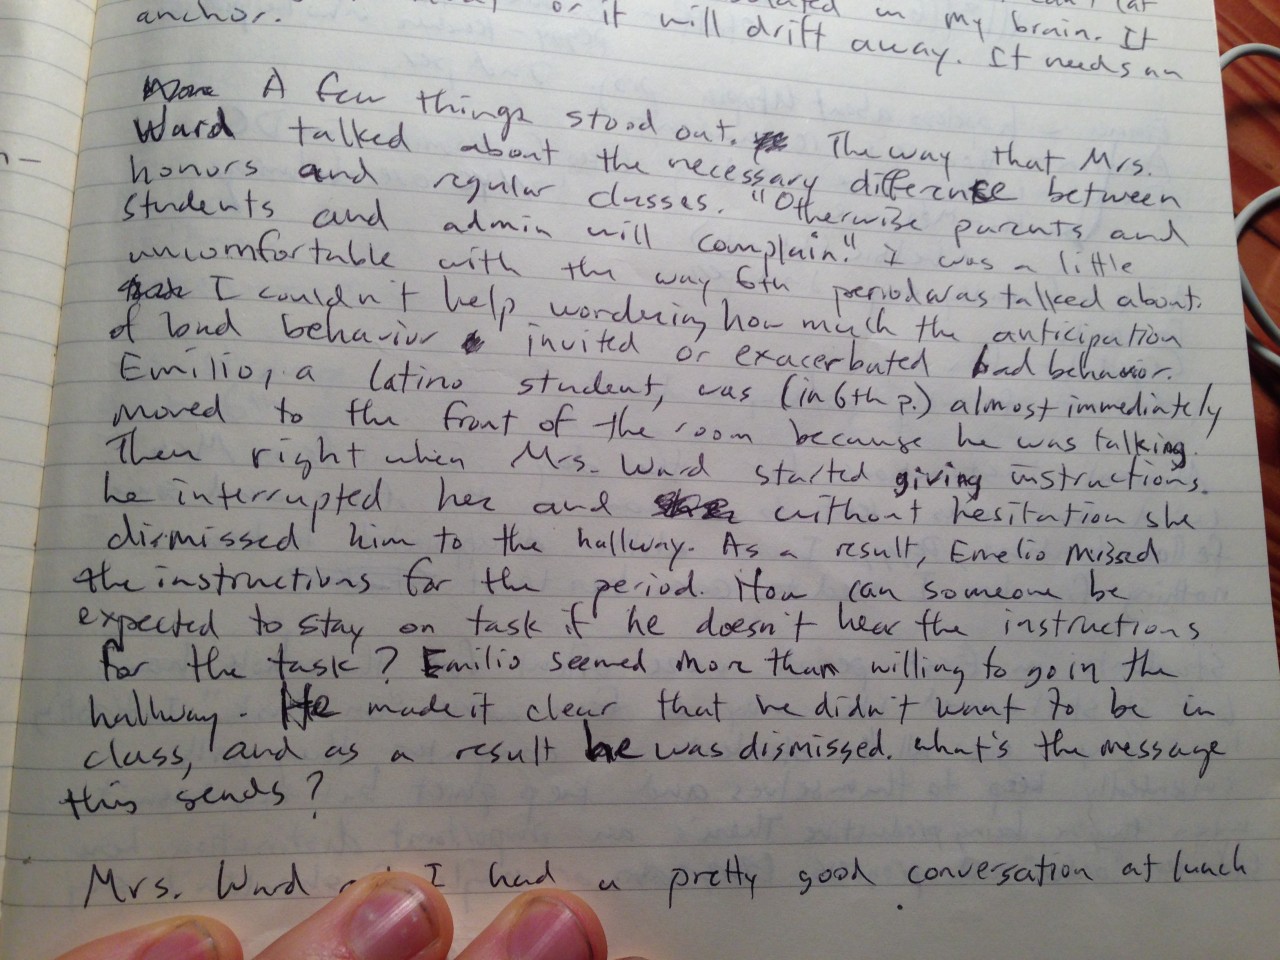 in my brain. It
or it will drift away. It needs an
anchor.
A few things stood out. The way that Mrs.
Ward talked about the necessary difference between
honors and regular classes. "Otherwise parents and
students and admin will complain." I was a little
uncomfortable with the way 6th period was talked about.
I couldn't help wondering how much the anticipation
of bad behavior invited or exacerbated bad behavior.
Emilio, a latino student, was (in 6th p.) almost immediately
moved to the front of the room because he was talking.
Then right when Mrs. Ward started giving instructions.
he interrupted her and without hesitation she
dismissed him to the hallway. As a result, Emelio missed
the instructions for the period. How can someone be
expected to stay on task if he doesn't hear the instructions
for the task? Emilio seemed more than willing to go in the
hallway. He made it clear that he didn't want to be in
class, and as a result he was dismissed. what's the message
this sends?
Mrs. Ward I had a pretty good conversation at lunch